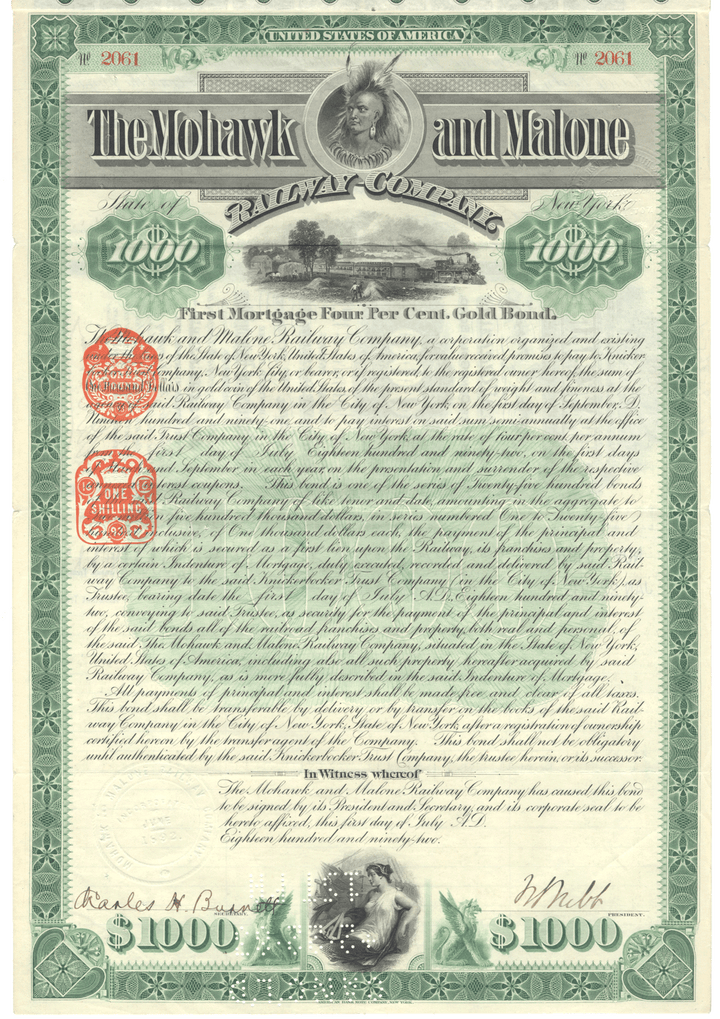 UNITED STATES OF AMERICA
Nº 2061
Nº 2061
The Mohawk and Malone
RAILWAY COMPANY.
State of New York
1000
1000
First Mortgage Four Per Cent. Gold Bond.
The Mohawk and Malone Railway Company, a corporation organized and existing
under the of the State of New York, United States of America, for value received promises to pay to Knicker
Company, New York City, or bearer, or if registered, to the registered owner hereof, the sum of
One Thousand Dollars in gold coin of the United States, of the present standard of weight and fineness at the
agency of said Railway Company in the City of New York, on the first day of September, A.D.
hundred and ninety-one and to pay interest on said sum semi-annually at the office
of the said Trust Company in the City of New York, at the rate of four per cent. per annum
from the first day of July Eighteen hundred and ninety-two, on the first days
of and September in each year, on the presentation and surrender of the respective
interest coupons. This bond is one of the series of Twenty-five hundred bonds
Railway Company of like tenor and date, amounting in the aggregate to
five hundred thousand dollars, in series numbered One to Twenty-five
inclusive, of One thousand dollars each, the payment of the principal and
interest of which is secured as a first lien upon the Railway, its franchises and property,
by a certain Indenture of Mortgage, duly executed, recorded and delivered by said Rail-
way Company to the said Knickerbocker Trust Company (in the City of New York), as
Trustee, bearing date the first day of July A.D. Eighteen hundred and ninety-
two, conveying to said Trustee, as security for the payment of the principal and interest
of the said bonds all of the railroad franchises and property, both real and personal, of
the said The Mohawk and Malone Railway Company, situated in the State of New York,
United States of America, including also all such property hereafter acquired by said
Railway Company, as is more fully described in the said Indenture of Mortgage.
All payments of principal and interest shall be made free and clear of all taxes.
This bond shall be transferable by delivery or by transfer on the books of the said Rail-
way Company in the City of New York, State of New York, after a registration of ownership
certified hereon by the transfer agent of the Company. This bond shall not be obligatory
until authenticated by the said Knickerbocker Trust Company, the trustee herein, or its successor.
In Witness whereof
The Mohawk and Malone Railway Company has caused this bond
to be signed by its President and Secretary, and its corporate seal to be
hereto affixed, this first day of July A.D.
Eighteen hundred and ninety-two.
ONE
SHILLING
Charles H. Burnett
SECRETARY.
PRESIDENT.
$1000
$1000
AMERICAN BANK NOTE COMPANY, NEW YORK.